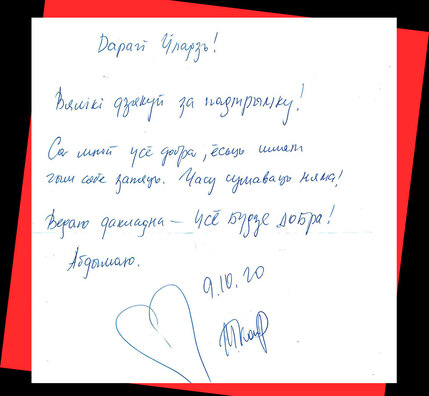 Дарагі Уладзь!
Вялікі дзякуй за падтрымку!
Са мной усё добра, ёсць шмат
чым сябе заняць. Часу сумаваць няма!
Ведаю дакладна – усё будзе добра!
Абдымаю.
9.10.20